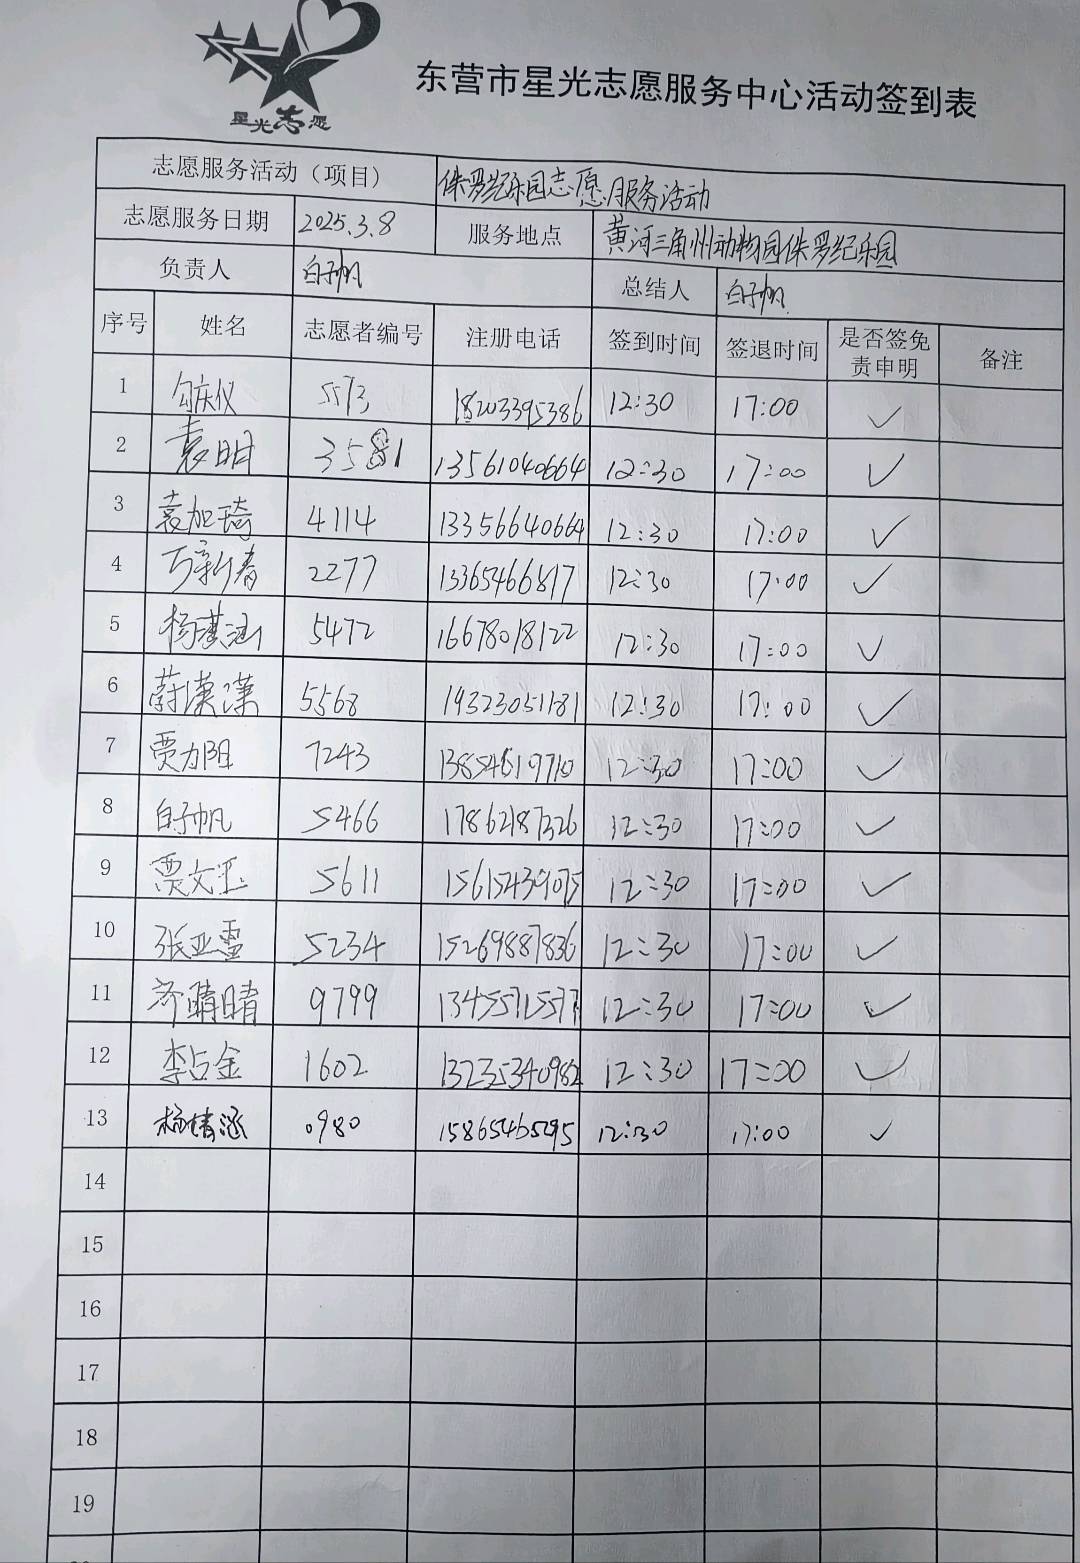 星光志愿
东营市星光志愿服务中心活动签到表
志愿服务活动（项目） 侏罗纪乐园志愿服务活动
志愿服务日期 2025.3.8 服务地点 黄河三角州动物园侏罗纪乐园
负责人 白子帆 总结人 白子帆
序号 姓名 志愿者编号 注册电话 签到时间 签退时间 是否签免责申明 备注
1 勾庆仪 5573 18203395386 12:30 17:00 ✓
2 袁明 3581 13561040664 12:30 17:00 ✓
3 袁加琦 4114 13356640664 12:30 17:00 ✓
4 万新春 2277 13365466817 12:30 17:00 ✓
5 杨潢涵 5472 16678018122 12:30 17:00 ✓
6 蔚潢潢 5568 19323051181 12:30 17:00 ✓
7 贾力阳 7243 13854619710 12:30 17:00 ✓
8 白子帆 5466 17862187326 12:30 17:00 ✓
9 贾文玉 5611 15615439075 12:30 17:00 ✓
10 张亚雪 5234 15269887836 12:30 17:00 ✓
11 齐晴晴 9799 13455715777 12:30 17:00 ✓
12 李占金 1602 13235340982 12:30 17:00 ✓
13 杨倩涵 0980 15865465295 12:30 17:00 ✓
14
15
16
17
18
19